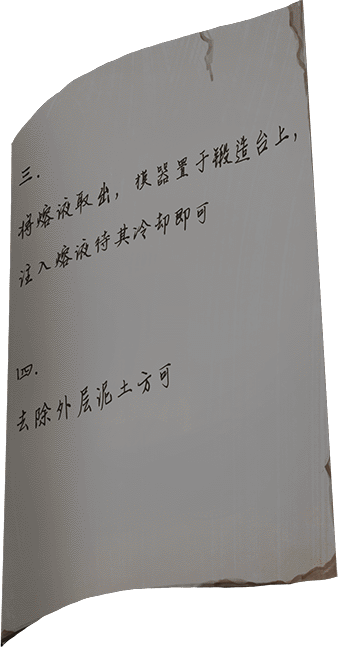 三.
将熔液取出，模器置于锻造台上，
注入熔液待其冷却即可
四.
去除外层泥土方可